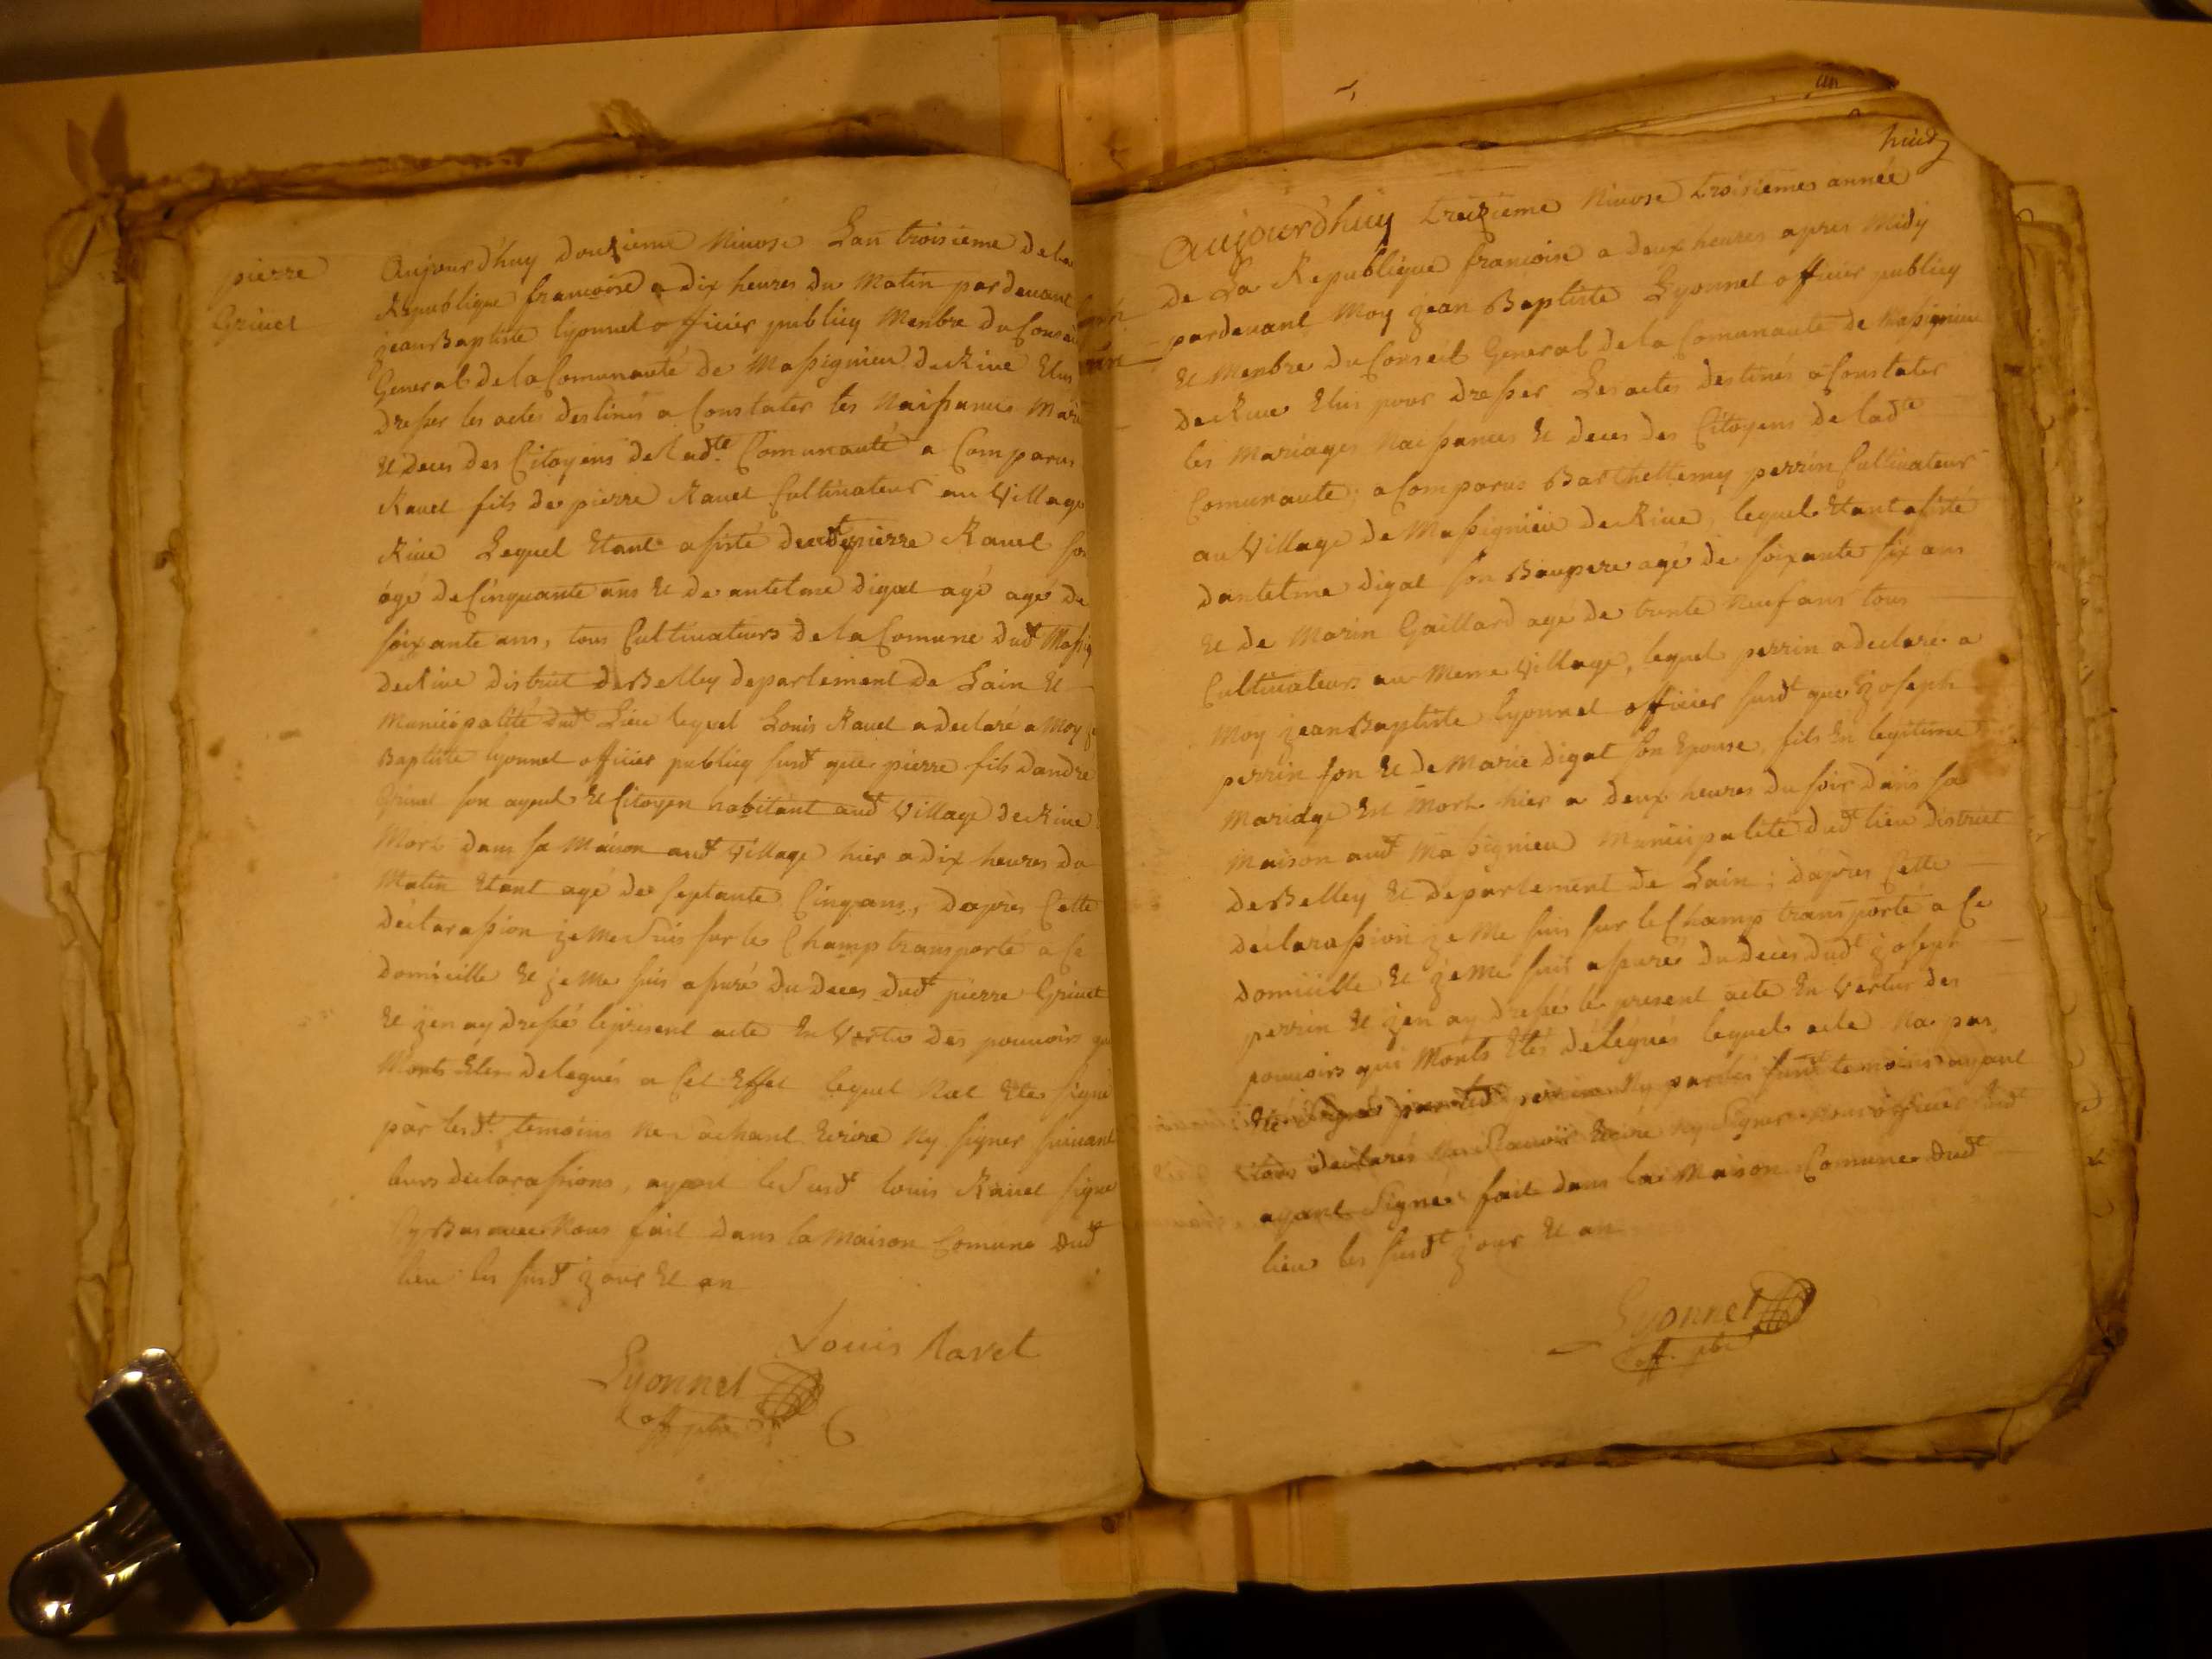 pierre
Grinet
Aujourd'huy douzieme Nivose Lan troisieme de la
Republique francoise a dix heures du Matin pardevant
jean Baptiste lyonnet officier publicq Menbre du Conseil
General de la Comunauté de Massignieu de Rive Elus
dresser les actes destinés a Constater les Naissances Mari
et deces des Citoyens de ladte Comunauté a Comparus
Ravet fils de pierre Ravet Cultivateur au Village
Rive Lequel Etant asisté dudt pierre Ravet son
agé de Cinquante ans et de antelme digat agé agé de
soixante ans, tous Cultivateurs de la Comune dudt Massig
de Rive district de Belley departement de Lain et
Municipalité dudt Lieu lequel Louis Ravet a declaré a Moy
Baptiste lyonnet officier publicq susdt que pierre fils dandré
Grinet son ayeul et Citoyen habitant audt Village de Rive
Mort dans sa Maison audt Village hier a dix heures du
Matin Etant agé de septante Cinq ans, daprès Cette
déclarassion je me suis sur le Champ transporté a Ce
domicille et je me suis assuré du deces dudt pierre Grinet
et jen ay dressé le present acte En Vertu des pouvoirs qui
Monts Etes delegués a Cet Effet lequel Nat Ete signé
par lesdt temoins ne sachant Ecrire Ny signer suivant
leurs declarassions, ayant le susdt louis Ravet signe
Cy Bas avec Nous fait dans la Maison Comune dudt
lieu les susdt jour et an
Louis Ravet
Lyonnet
off. pbc
huict
Aujourdhuy treizieme Nivose troisieme année
de La Republique francoise a deux heures apres Midy
pardevant Moy jean Baptiste Lyonnet officier publicq
et Menbre du Conseil General de la Comunaute de Massignieu
de Rive Elus pour dresser Les actes destinés a Constater
les Mariages Naissances et deces des Citoyens de ladte
Comunaute; a Comparus Barthellemy perrin Cultivateur
au Village de Massignieu de Rive, lequel Etant asisté
dantelme digat son Baupere agé de soixante six ans
et de Marin Gaillard agé de trente Neuf ans tous
Cultivateurs au Meme Village, lequel perrin a declaré a
Moy jean Baptiste lyonnet officier susdt que joseph
perrin son et de Marie digat son Epouse, fils En legitime
Mariage Est Mort hier a deux heures du soir dans sa
Maison audt Massignieu Municipalité dudt lieu district
de Belley et departement de Lain; daprès Cette
déclarassion je me suis sur le Champ transporté a Ce
domicille et je me suis assuré du deces dudt joseph
perrin et jen ay dressé le present acte En Vertus des
pouvoirs qui Monts Etés délégués lequel acte Na pas
Eté signé par ledt perrin Ny par les susdt temoins ayant
tous declarés Ne scavoir Ecrire Ny signer Nous officier susdt
ayant Signé fait dans la Maison Comune dudt
lieu les susdt jour et an
Lyonnet
off. pbc